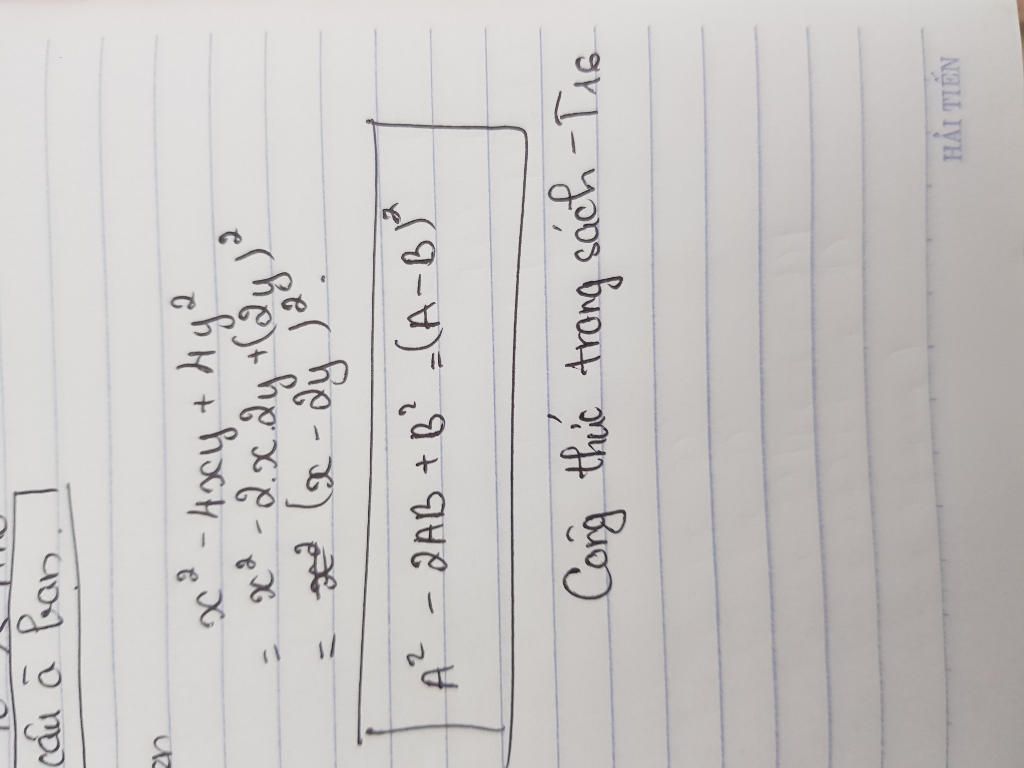 câu à bạn.
x² - 4xy + 4y²
= x² - 2.x.2y + (2y)²
= (x - 2y)².
A² - 2AB + B² = (A - B)²
Công thức trong sách - T16
HẢI TIẾN